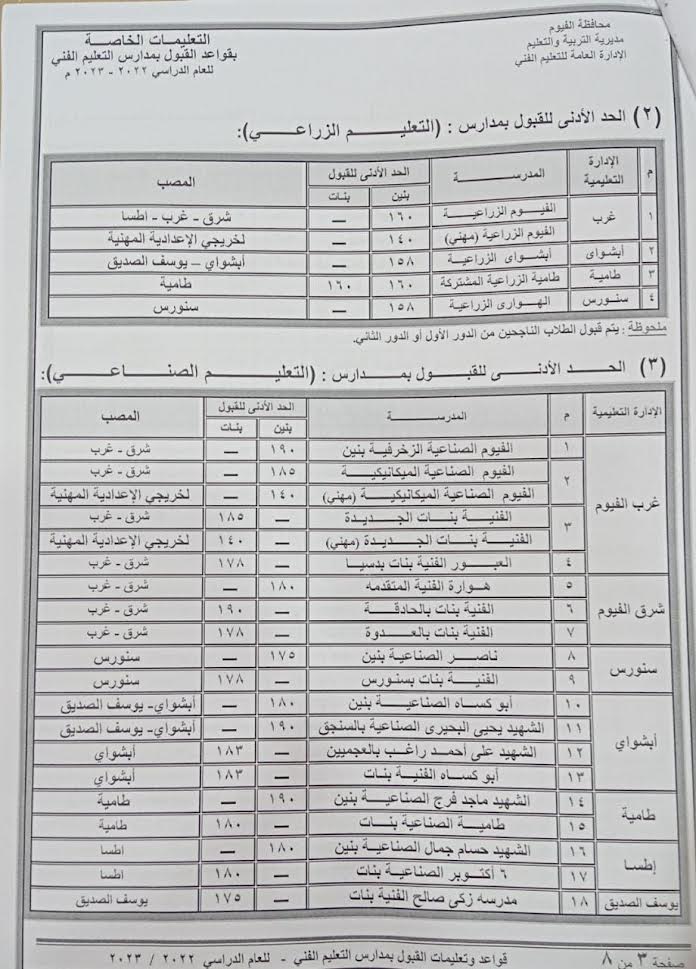 محافظة الفيوم
مديرية التربية والتعليم
الإدارة العامة للتعليم الفني
التعليمات الخاصة
بقواعد القبول بمدارس التعليم الفني
للعام الدراسي ٢٠٢٢ - ٢٠٢٣ م
(٢) الحد الأدنى للقبول بمدارس : (التعليم الزراعي):
م الإدارة التعليمية المدرسة الحد الأدنى للقبول المصب
بنين بنات
١ غرب الفيوم الزراعية ١٦٠ — شرق - غرب - اطسا
الفيوم الزراعية (مهني) ١٤٠ — لخريجي الإعدادية المهنية
٢ أبشواى أبشواى الزراعية ١٥٨ — أبشواي – يوسف الصديق
٣ طامية طامية الزراعية المشتركة ١٦٠ ١٦٠ طامية
٤ سنورس الهوارى الزراعية ١٥٨ — سنورس
ملحوظة : يتم قبول الطلاب الناجحين من الدور الأول أو الدور الثاني.
(٣) الحد الأدنى للقبول بمدارس : (التعليم الصناعي):
الإدارة التعليمية م المدرسة الحد الأدنى للقبول المصب
بنين بنات
غرب الفيوم ١ الفيوم الصناعية الزخرفية بنين ١٩٠ — شرق - غرب
٢ الفيوم الصناعية الميكانيكية ١٨٥ — شرق - غرب
الفيوم الصناعية الميكانيكية (مهني) ١٤٠ — لخريجي الإعدادية المهنية
٣ الفنية بنات الجديدة — ١٨٥ شرق - غرب
الفنية بنات الجديدة (مهني) — ١٤٠ لخريجي الإعدادية المهنية
٤ العبور الفنية بنات بدسيا — ١٧٨ شرق - غرب
شرق الفيوم ٥ هوارة الفنية المتقدمه ١٨٠ — شرق - غرب
٦ الفنية بنات بالحادقة — ١٩٠ شرق - غرب
٧ الفنية بنات بالعدوة — ١٧٨ شرق - غرب
سنورس ٨ ناصر الصناعية بنين ١٧٥ — سنورس
٩ الفنية بنات بسنورس — ١٧٨ سنورس
أبشواي ١٠ أبو كساه الصناعية بنين ١٨٠ — أبشواي- يوسف الصديق
١١ الشهيد يحيى البحيرى الصناعية بالسنجق ١٩٠ — أبشواي- يوسف الصديق
١٢ الشهيد على أحمد راغب بالعجميين — ١٨٣ أبشواي
١٣ أبو كساه الفنية بنات — ١٨٣ أبشواي
طامية ١٤ الشهيد ماجد فرج الصناعية بنين ١٩٠ — طامية
١٥ طامية الصناعية بنات — ١٨٠ طامية
إطسا ١٦ الشهيد حسام جمال الصناعية بنين ١٨٠ — اطسا
١٧ ٦ أكتوبر الصناعية بنات — ١٨٠ اطسا
يوسف الصديق ١٨ مدرسه زكى صالح الفنية بنات — ١٧٥ يوسف الصديق
صفحة ٣ من ٨
قواعد وتعليمات القبول بمدارس التعليم الفني - للعام الدراسي ٢٠٢٢ / ٢٠٢٣